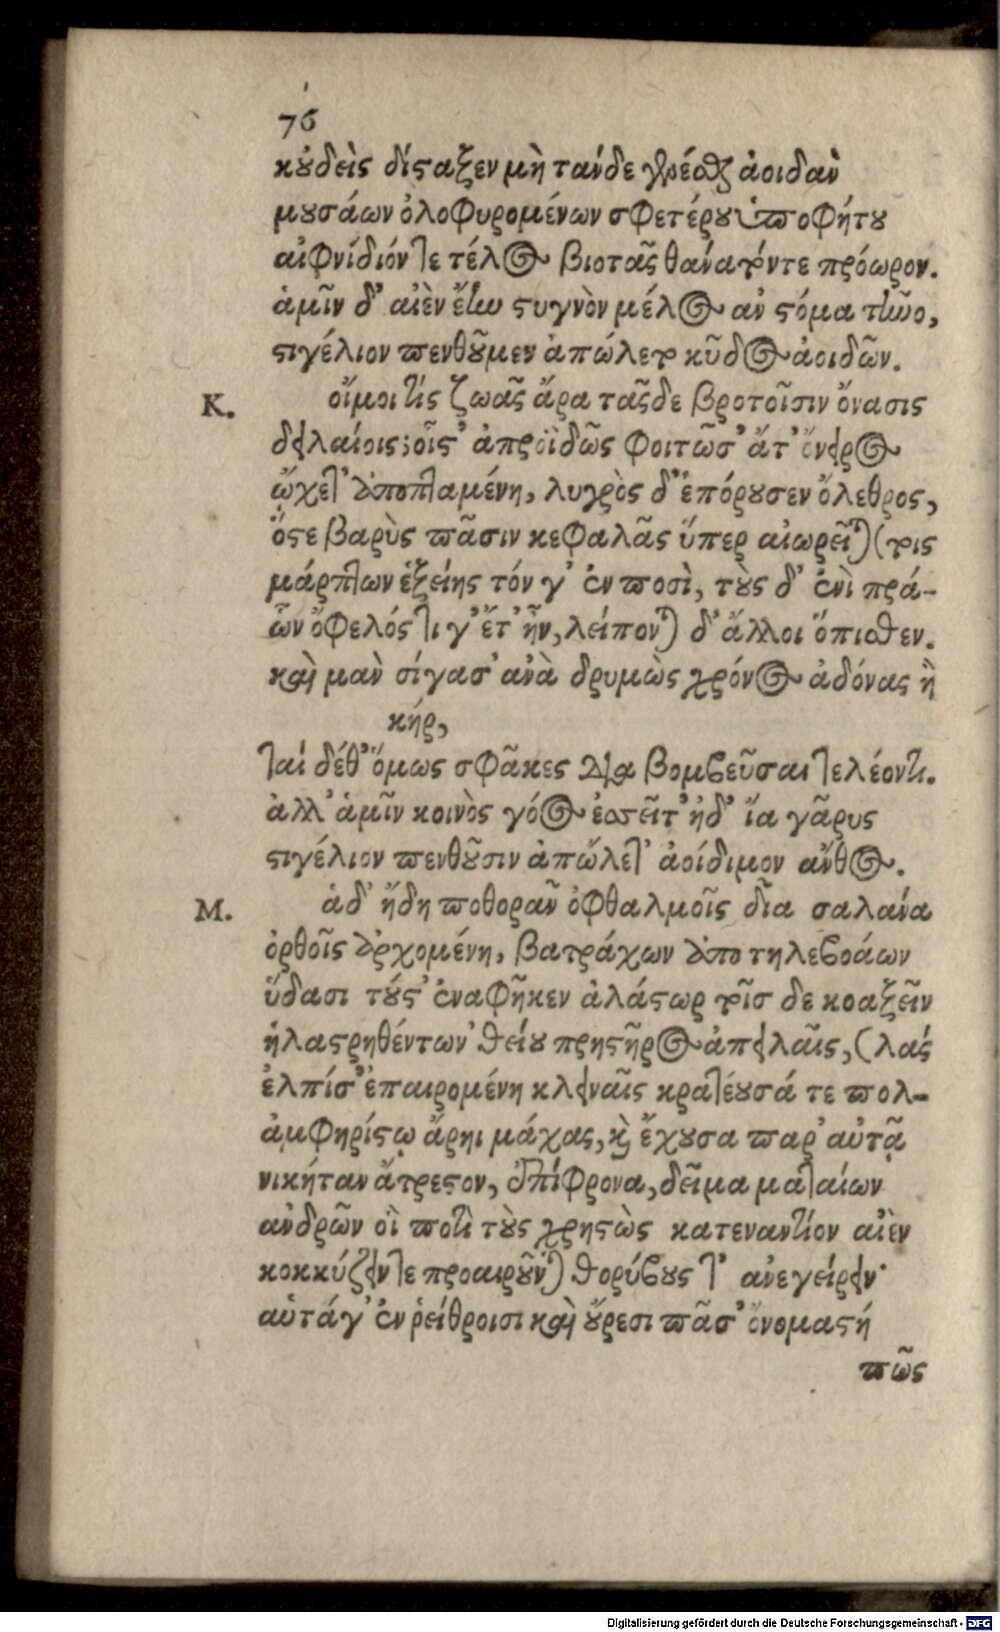 76
κοὐδεὶς δίσταξεν μὴ τάνδε χρέεσθαι ἀοιδὰν
μουσάων ὀλοφυρομένων σφετέρου ὑποφήτου
αἰφνίδιόν τε τέλος βιοτᾶς θάνατόν τε πρόωρον.
ἁμῖν δ' αἰὲν ἔτω στυγνὸν μέλος ἀν στόμα τῶο,
στιγέλιον πενθοῦμεν ἀπώλετο κῦδος ἀοιδῶν.
K. οἴμοι τίς ζωᾶς ἄρα τᾶσδε βροτοῖσιν ὄνασις
δειλαίοις; οἷς' ἀπροϊδῶς φοιτῶσ' ἅτ' ὄνειρος
ᾤχετ' ἀποπταμένη, λυγρὸς δ' ἐπόρουσεν ὄλεθρος,
ὅστε βαρὺς πᾶσιν κεφαλᾶς ὕπερ αἰωρεῖται (τοις
μάρπτων ἑξείης τόν γ' ἐν ποσὶ, τοὺς δ' ἐνὶ πρά-
ὧν ὄφελός τι γ' ἔτ' ἦν, λείπονται δ' ἄλλοι ὄπισθεν.
καὶ μὰν σίγασ' ἀνὰ δρυμὼς χρόνος ἀδόνας ἢ
κήρ,
ταὶ δέθ' ὅμως σφᾶκες διὰ βομβεῦσαι τελέοντι.
ἀλλ' ἁμῖν κοινὸς γόος ἐσσεῖτ' ἠδ' ἴα γᾶρυς
στιγέλιον πενθοῦσιν ἀπώλετ' ἀοίδιμον ἄνθος.
M. ἁδ' ἤδη ποθορᾶν ὀφθαλμοῖς δῖα σαλάνα
ὀρθοῖς ἀρχομένη, βατράχων ἀπο τηλεβοάων
ὕδασι τούς' ἐναφῆκεν ἀλάστωρ τοῖσδε κοαξεῖν
ἠλαστρηθέντων' θείου πρηστῆρος ἀπειλαῖς, (λάς
ἐλπίσ' ἐπαιρομένη κλειναῖς κρατέουσά τε πολ-
ἀμφηρίστῳ ἄρηι μάχας, καὶ ἔχουσα παρ' αὐτᾷ
νικήταν ἄτρεστον, ἐπίφρονα, δεῖμα ματαίων
ἀνδρῶν οἳ ποτὶ τοὺς χρηστὼς κατεναντίον αἰὲν
κοκκύζειν τε προαιροῦνται θορύβους τ' ἀνεγείρειν·
αὐτά γ' ἐν ῥείθροισι καὶ οὔρεσι πᾶσ' ὀνομαστή
πῶς
Digitalisierung gefördert durch die Deutsche Forschungsgemeinschaft - DFG